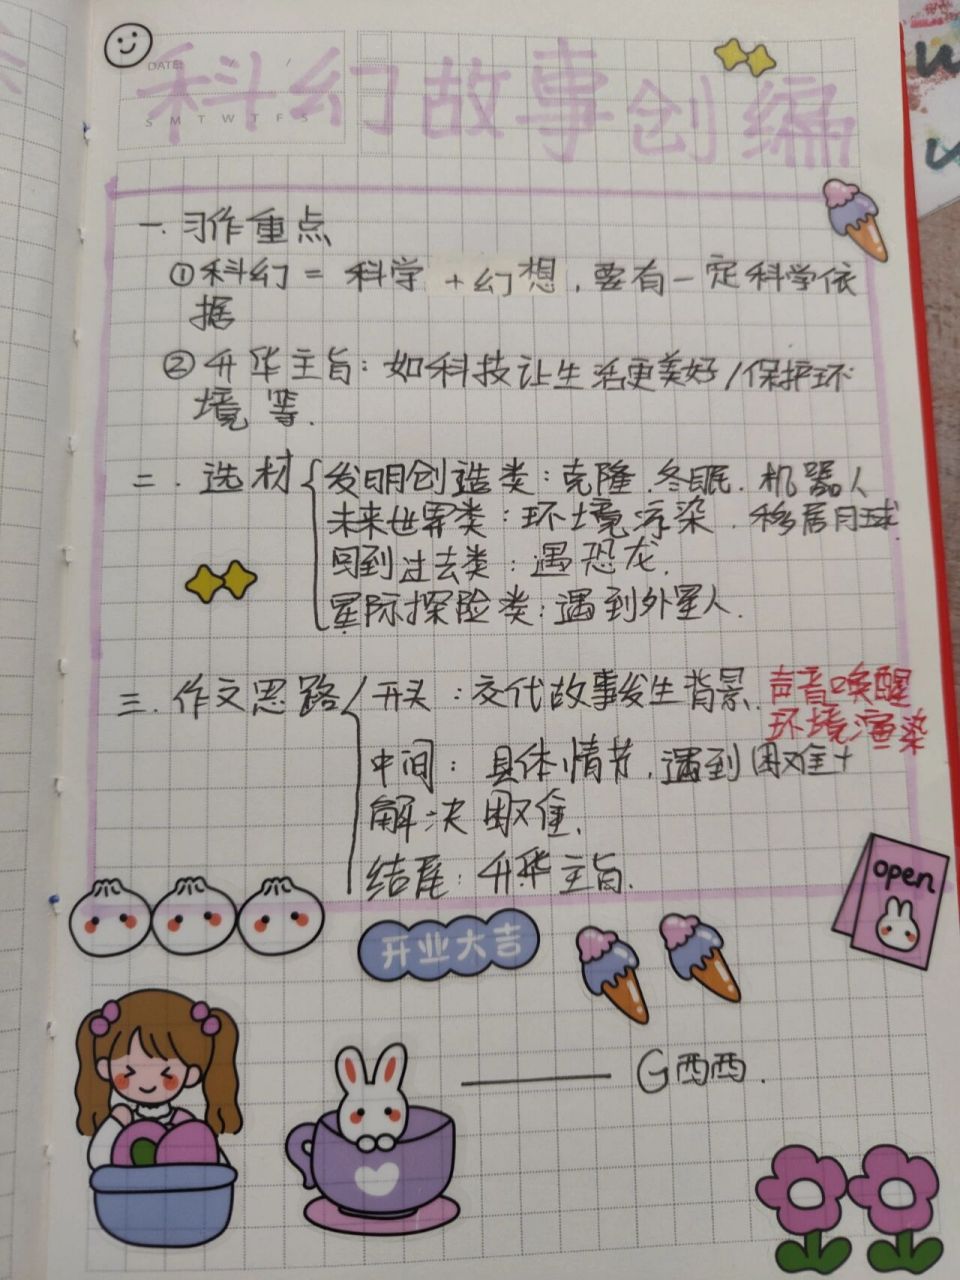 DATE: / /
S M T W T F S
科幻故事创编
一.习作重点
①科幻=科学+幻想,要有一定科学依
据
②升华主旨:如科技让生活更美好/保护环
境等.
二.选材
发明创造类:克隆.冬眠.机器人
未来世界类:环境污染.移居月球
回到过去类:遇恐龙.
星际探险类:遇到外星人.
三.作文思路
开头:交代故事发生背景.
声音唤醒
环境渲染
中间:具体情节,遇到困难+
解决困难.
结尾:升华主旨.
open
开业大吉
——G西西.